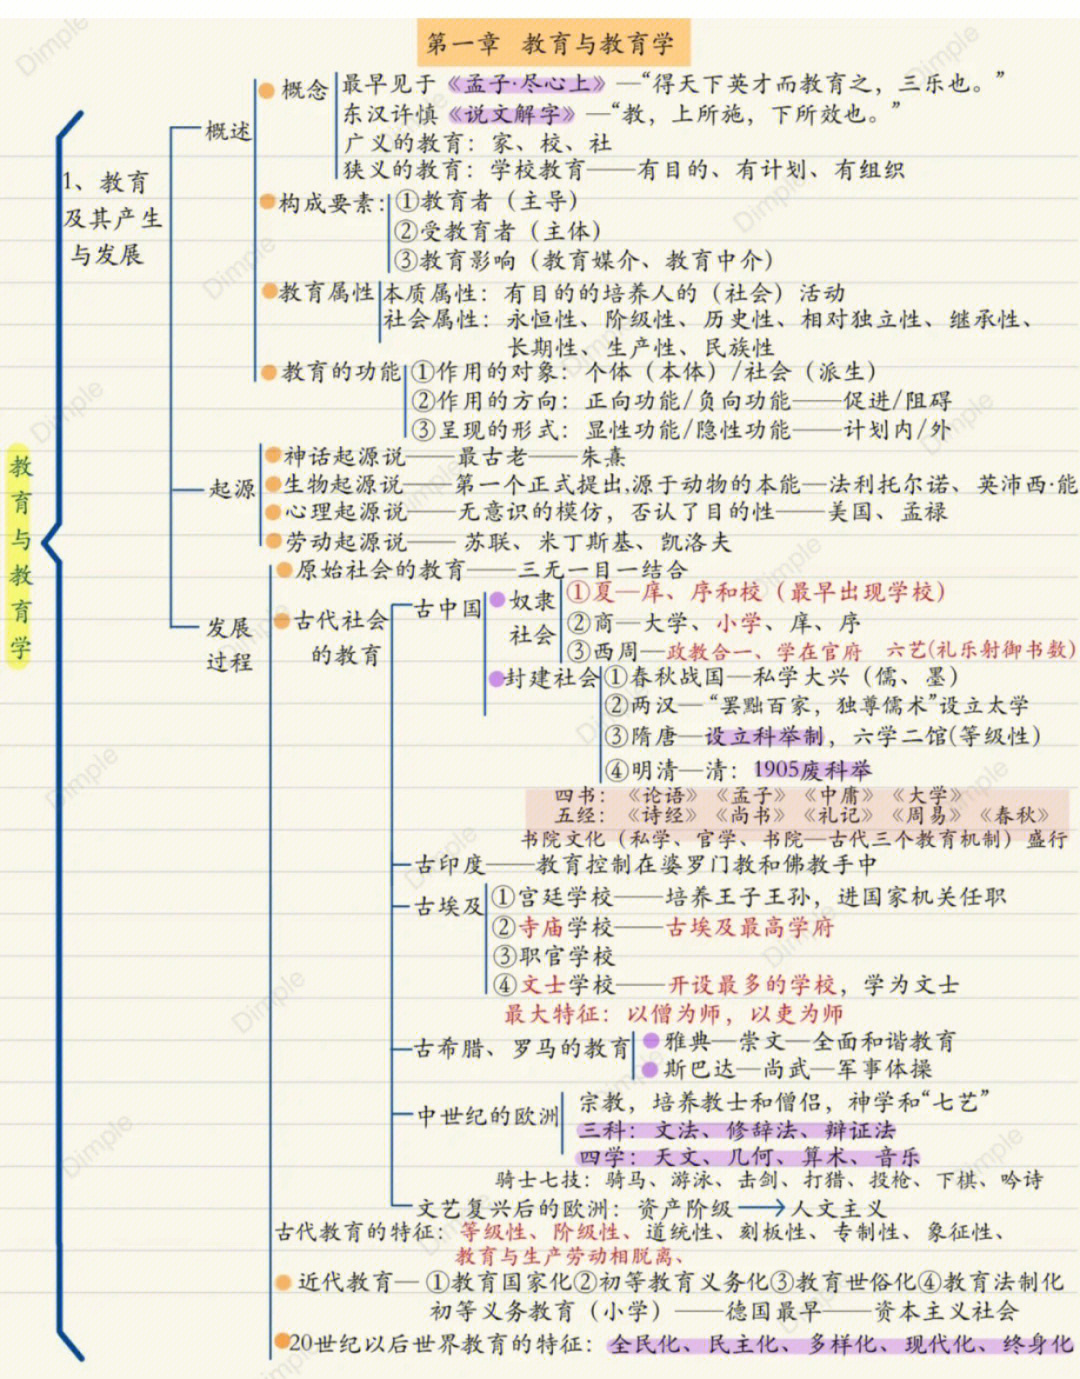 第一章 教育与教育学
教育与教育学
1、教育
及其产生
与发展
概述
概念
最早见于《孟子·尽心上》—“得天下英才而教育之，三乐也。”
东汉许慎《说文解字》—“教，上所施，下所效也。”
广义的教育：家、校、社
狭义的教育：学校教育——有目的、有计划、有组织
构成要素：①教育者（主导）
②受教育者（主体）
③教育影响（教育媒介、教育中介）
教育属性 本质属性：有目的的培养人的（社会）活动
社会属性：永恒性、阶级性、历史性、相对独立性、继承性、
长期性、生产性、民族性
教育的功能 ①作用的对象：个体（本体）/社会（派生）
②作用的方向：正向功能/负向功能——促进/阻碍
③呈现的形式：显性功能/隐性功能——计划内/外
起源
神话起源说——最古老——朱熹
生物起源说——第一个正式提出,源于动物的本能—法利托尔诺、英沛西·能
心理起源说——无意识的模仿，否认了目的性——美国、孟禄
劳动起源说——苏联、米丁斯基、凯洛夫
发展
过程
原始社会的教育——三无一目一结合
古代社会
的教育
古中国
奴隶
社会
①夏—庠、序和校（最早出现学校）
②商—大学、小学、庠、序
③西周—政教合一、学在官府 六艺(礼乐射御书数)
封建社会 ①春秋战国—私学大兴（儒、墨）
②两汉—“罢黜百家，独尊儒术”设立太学
③隋唐—设立科举制，六学二馆(等级性)
④明清—清：1905废科举
四书：《论语》《孟子》《中庸》《大学》
五经：《诗经》《尚书》《礼记》《周易》《春秋》
书院文化（私学、官学、书院—古代三个教育机制）盛行
古印度——教育控制在婆罗门教和佛教手中
古埃及 ①宫廷学校——培养王子王孙，进国家机关任职
②寺庙学校——古埃及最高学府
③职官学校
④文士学校——开设最多的学校，学为文士
最大特征：以僧为师，以吏为师
古希腊、罗马的教育 雅典—崇文—全面和谐教育
斯巴达—尚武—军事体操
中世纪的欧洲 宗教，培养教士和僧侣，神学和“七艺”
三科：文法、修辞法、辩证法
四学：天文、几何、算术、音乐
骑士七技：骑马、游泳、击剑、打猎、投枪、下棋、吟诗
文艺复兴后的欧洲：资产阶级→人文主义
古代教育的特征：等级性、阶级性、道统性、刻板性、专制性、象征性、
教育与生产劳动相脱离、
近代教育—①教育国家化②初等教育义务化③教育世俗化④教育法制化
初等义务教育（小学）——德国最早——资本主义社会
20世纪以后世界教育的特征：全民化、民主化、多样化、现代化、终身化
Dimple